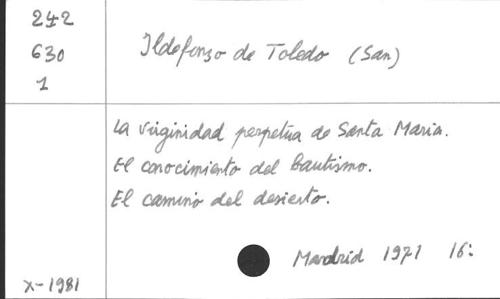 242
630
1
Ildefonso de Toledo (San)
La virginidad perpetua de Santa Maria.
El conocimiento del bautismo.
El camino del desierto.
Madrid 1971 16:
X-1981